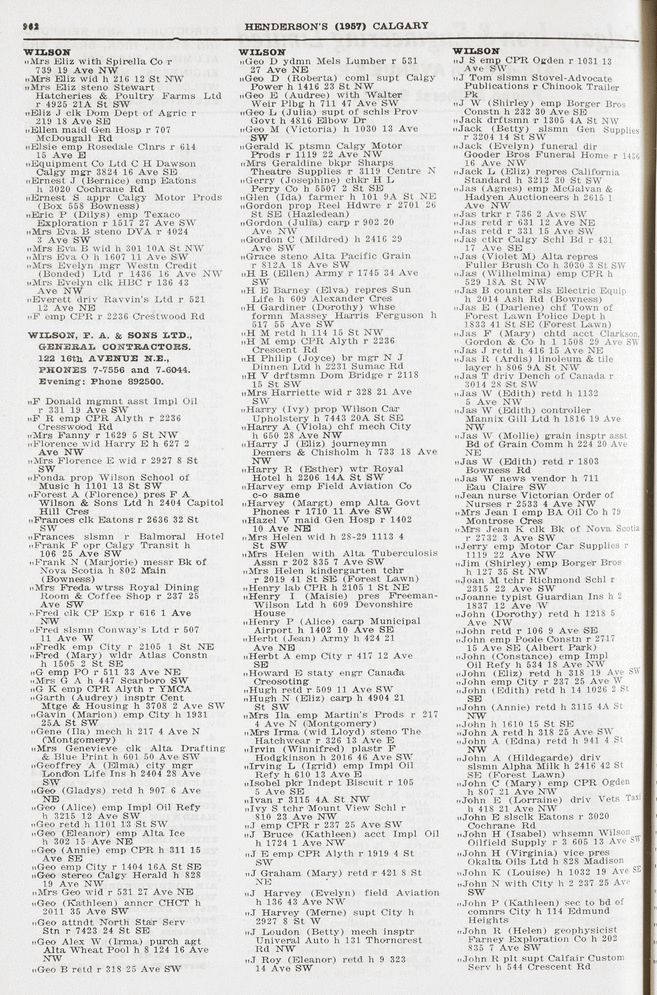 962
HENDERSON'S (1957) CALGARY
WILSON
„Mrs Eliz with Spirella Co r
739 19 Ave NW
„Mrs Eliz wid h 216 12 St NW
„Mrs Eliz steno Stewart
Hatcheries & Poultry Farms Ltd
r 4925 21A St SW
„Eliz J clk Dom Dept of Agric r
219 18 Ave SE
„Ellen maid Gen Hosp r 707
McDougall Rd
„Elsie emp Rosedale Clnrs r 614
15 Ave E
„Equipment Co Ltd C H Dawson
Calgy mgr 3824 16 Ave SE
„Ernest J (Bernice) emp Eatons
h 3020 Cochrane Rd
„Ernest S appr Calgy Motor Prods
(Box 558 Bowness)
„Eric P (Dilys) emp Texaco
Exploration r 1517 27 Ave SW
„Mrs Eva B steno DVA r 4024
3 Ave SW
„Mrs Eva B wid h 301 10A St NW
„Mrs Eva O h 1607 11 Ave SW
„Mrs Evelyn mgr Westn Credit
(Bonded) Ltd r 1436 16 Ave NW
„Mrs Evelyn clk HBC r 136 43
Ave NW
„Everett driv Ravvin's Ltd r 521
12 Ave NE
„F emp CPR r 2236 Crestwood Rd
WILSON, F. A. & SONS LTD.,
GENERAL CONTRACTORS.
122 16th AVENUE N.E.,
PHONES 7-7556 and 7-6044.
Evening: Phone 892500.
„F Donald mgmnt asst Impl Oil
r 331 19 Ave SW
„F R emp CPR Alyth r 2236
Cresswood Rd
„Mrs Fanny r 1629 5 St NW
„Florence wid Harry E h 627 2
Ave NW
„Mrs Florence E wid r 2927 8 St
SW
„Fonda prop Wilson School of
Music h 1101 13 St SW
„Forest A (Florence) pres F A
Wilson & Sons Ltd h 2404 Capitol
Hill Cres
„Frances clk Eatons r 2636 32 St
SW
„Frances slsmn r Balmoral Hotel
„Frank F opr Calgy Transit h
106 25 Ave SW
„Frank N (Marjorie) messr Bk of
Nova Scotia h 802 Main
(Bowness)
„Mrs Freda wtrss Royal Dining
Room & Coffee Shop r 237 25
Ave SW
„Fred clk CP Exp r 616 1 Ave
NW
„Fred slsmn Conway's Ltd r 507
11 Ave W
„Fredk emp City r 2105 1 St NE
„Fred (Mary) wldr Atlas Constn
h 1505 2 St SE
„G emp PO r 511 33 Ave NE
„Mrs G A h 447 Scarboro SW
„G K emp CPR Alyth r YMCA
„Garth (Audrey) insptr Cent
Mtge & Housing h 3708 2 Ave SW
„Gavin (Marion) emp City h 1931
25A St SW
„Gene (Ila) mech h 217 4 Ave N
(Montgomery)
„Mrs Genevieve clk Alta Drafting
& Blue Print h 601 50 Ave SW
„Geoffrey A (Elma) city mgr
London Life Ins h 2404 28 Ave
SW
„Geo (Gladys) retd h 907 6 Ave
NE
„Geo (Alice) emp Impl Oil Refy
h 3215 12 Ave SW
„Geo retd h 1101 13 St SW
„Geo (Eleanor) emp Alta Ice
h 302 15 Ave NE
„Geo (Annie) emp CPR h 311 15
Ave SE
„Geo emp City r 1404 16A St SE
„Geo stereo Calgy Herald h 828
19 Ave NW
„Mrs Geo wid r 531 27 Ave NE
„Geo (Kathleen) anncr CHCT h
2011 35 Ave SW
„Geo attndt North Star Serv
Stn r 7423 24 St SE
„Geo Alex W (Irma) purch agt
Alta Wheat Pool h 8 124 16 Ave
NW
„Geo B retd r 318 25 Ave SW
WILSON
„Geo D ydmn Mels Lumber r 531
27 Ave NE
„Geo D (Roberta) coml supt Calgy
Power h 1416 23 St NW
„Geo E (Audree) with Walter
Weir Plbg h 711 47 Ave SW
„Geo L (Julia) supt of schls Prov
Govt h 4816 Elbow Dr
„Geo M (Victoria) h 1030 13 Ave
SW
„Gerald K ptsmn Calgy Motor
Prods r 1119 22 Ave NW
„Mrs Geraldine bkpr Sharps
Theatre Supplies r 3119 Centre N
„Gerry (Josephine) chkr H L
Perry Co h 5507 2 St SE
„Glen (Ida) farmer h 101 9A St NE
„Gordon prop Reel Hdwre r 2701 26
St SE (Hazledean)
„Gordon (Julia) carp r 902 20
Ave NW
„Gordon C (Mildred) h 2416 29
Ave SW
„Grace steno Alta Pacific Grain
r 812A 18 Ave SW
„H B (Ellen) Army r 1745 34 Ave
SW
„H E Barney (Elva) repres Sun
Life h 609 Alexander Cres
„H Gardiner (Dorothy) whse
formn Massey Harris Ferguson h
517 55 Ave SW
„H M retd h 114 15 St NW
„H M emp CPR Alyth r 2236
Crescent Rd
„H Philip (Joyce) br mgr N J
Dinnen Ltd h 2231 Sumac Rd
„H V drftsmn Dom Bridge r 2118
15 St SW
„Mrs Harriette wid r 328 21 Ave
SW
„Harry (Ivy) prop Wilson Car
Upholstery h 7443 20A St SE
„Harry A (Viola) chf mech City
h 650 28 Ave NW
„Harry J (Eliz) journeymn
Demers & Chisholm h 733 18 Ave
NW
„Harry R (Esther) wtr Royal
Hotel h 2206 14A St SW
„Harvey emp Field Aviation Co
c-o same
„Harvey (Margt) emp Alta Govt
Phones r 1710 11 Ave SW
„Hazel V maid Gen Hosp r 1402
10 Ave NE
„Mrs Helen wid h 28-29 1113 4
St SW
„Mrs Helen with Alta Tuberculosis
Assn r 202 835 7 Ave SW
„Mrs Helen kindergarten tchr
r 2019 41 St SE (Forest Lawn)
„Henry lab CPR h 2105 1 St NE
„Henry I (Maisie) pres Freeman-
Wilson Ltd h 609 Devonshire
House
„Henry P (Alice) carp Municipal
Airport h 1402 10 Ave SE
„Herbt (Jean) Army h 424 21
Ave NE
„Herbt A emp City r 417 12 Ave
SE
„Howard E staty engr Canada
Creosoting
„Hugh retd r 509 11 Ave SW
„Hugh N (Eliz) carp h 4904 21
St SW
„Mrs Ila emp Martin's Prods r 217
4 Ave N (Montgomery)
„Mrs Irma (wid Lloyd) steno The
Hatchwear r 326 13 Ave E
„Irvin (Winnifred) plastr F
Hodgkinson h 2016 46 Ave SW
„Irving L (Igrid) emp Impl Oil
Refy h 610 13 Ave E
„Isobel pkr Indept Biscuit r 105
5 Ave SE
„Ivan r 3115 4A St NW
„Ivy S tchr Mount View Schl r
810 23 Ave NW
„J emp CPR r 237 25 Ave SW
„J Bruce (Kathleen) acct Impl Oil
h 1724 1 Ave NW
„J E emp CPR Alyth r 1919 4 St
SW
„J Graham (Mary) retd r 421 8 St
NE
„J Harvey (Evelyn) field Aviation
h 136 43 Ave NW
„J Harvey (Merne) supt City h
2927 8 St W
„J Loudon (Betty) mech insptr
Univeral Auto h 131 Thorncrest
Rd NW
„J Roy (Eleanor) retd h 9 323
14 Ave SW
WILSON
„J S emp CPR Ogden r 1031 13
Ave SW
„J Tom slsmn Stovel-Advocate
Publications r Chinook Trailer
Pk
„J W (Shirley) emp Borger Bros
Constn h 232 30 Ave SE
„Jack drftsmn r 1305 4A St NW
„Jack (Betty) slsmn Gen Supplies
r 3204 14 St SW
„Jack (Evelyn) funeral dir
Gooder Bros Funeral Home r 1436
16 Ave NW
„Jack L (Eliz) repres California
Standard h 3212 30 St SW
„Jas (Agnes) emp McGalvan &
Hadyen Auctioneers h 2615 1
Ave NW
„Jas trkr r 736 2 Ave SW
„Jas retd r 631 12 Ave NE
„Jas retd r 331 15 Ave SW
„Jas ctkr Calgy Schl Bd r 431
17 Ave SE
„Jas (Violet M) Alta repres
Fuller Brush Co h 3030 3 St SW
„Jas (Wilhelmina) emp CPR h
529 18A St NW
„Jas B counter sls Electric Equip
h 2014 Ash Rd (Bowness)
„Jas E (Darlene) chf Town of
Forest Lawn Police Dept h
1833 41 St SE (Forest Lawn)
„Jas F (Mary) chtd acct Clarkson,
Gordon & Co h 1 1508 29 Ave SW
„Jas J retd h 416 15 Ave NE
„Jas R (Ardis) linoleum & tile
layer h 806 9A St NW
„Jas T driv Dench of Canada r
3014 28 St SW
„Jas W (Edith) retd h 1132
5 Ave NW
„Jas W (Edith) controller
Mannix Gill Ltd h 1816 19 Ave
NW
„Jas W (Mollie) grain insptr asst
Bd of Grain Comm h 224 20 Ave
NE
„Jas W (Edith) retd r 1803
Bowness Rd
„Jas W news vendor h 711
Eau Claire SW
„Jean nurse Victorian Order of
Nurses r 2533 4 Ave NW
„Mrs Jean I emp BA Oil Co h 79
Montrose Cres
„Mrs Jean K clk Bk of Nova Scotia
r 2732 3 Ave SW
„Jerry emp Motor Car Supplies r
1119 22 Ave NW
„Jim (Shirley) emp Borger Bros
h 127 35 St NW
„Joan M tchr Richmond Schl r
2315 22 Ave SW
„Joanne typist Guardian Ins h 2
1837 12 Ave W
„John (Dorothy) retd h 1218 5
Ave NW
„John retd r 106 9 Ave SE
„John emp Poole Constn r 2717
15 Ave SE (Albert Park)
„John (Constance) emp Impl
Oil Refy h 534 18 Ave NW
„John (Eliz) retd h 318 19 Ave SW
„John emp City r 237 25 Ave W
„John (Edith) retd h 14 1026 2 St
SE
„John (Annie) retd h 3115 4A St
NW
„John h 1610 15 St SE
„John A retd h 318 25 Ave SW
„John A (Edna) retd h 941 4 St
NW
„John A (Hildegarde) driv
slsmn Alpha Milk h 2416 42 St
SE (Forest Lawn)
„John C (Mary) emp CPR Ogden
h 807 21 Ave NW
„John E (Lorraine) driv Vets Taxi
h 418 21 Ave NW
„John E slsclk Eatons r 3020
Cochrane Rd
„John H (Isabel) whsemn Wilson
Oilfield Supply r 2 605 13 Ave SW
„John H (Virginia) vice pres
Okalta Oils Ltd h 828 Madison
„John K (Louise) h 1032 19 Ave SE
„John N with City h 2 237 25 Ave
SW
„John P (Kathleen) sec to bd of
comnrs City h 114 Edmund
Heights
„John R (Helen) geophysicist
Farney Exploration Co h 202
835 7 Ave SW
„John R plt supt Calfair Custom
Serv h 544 Crescent Rd